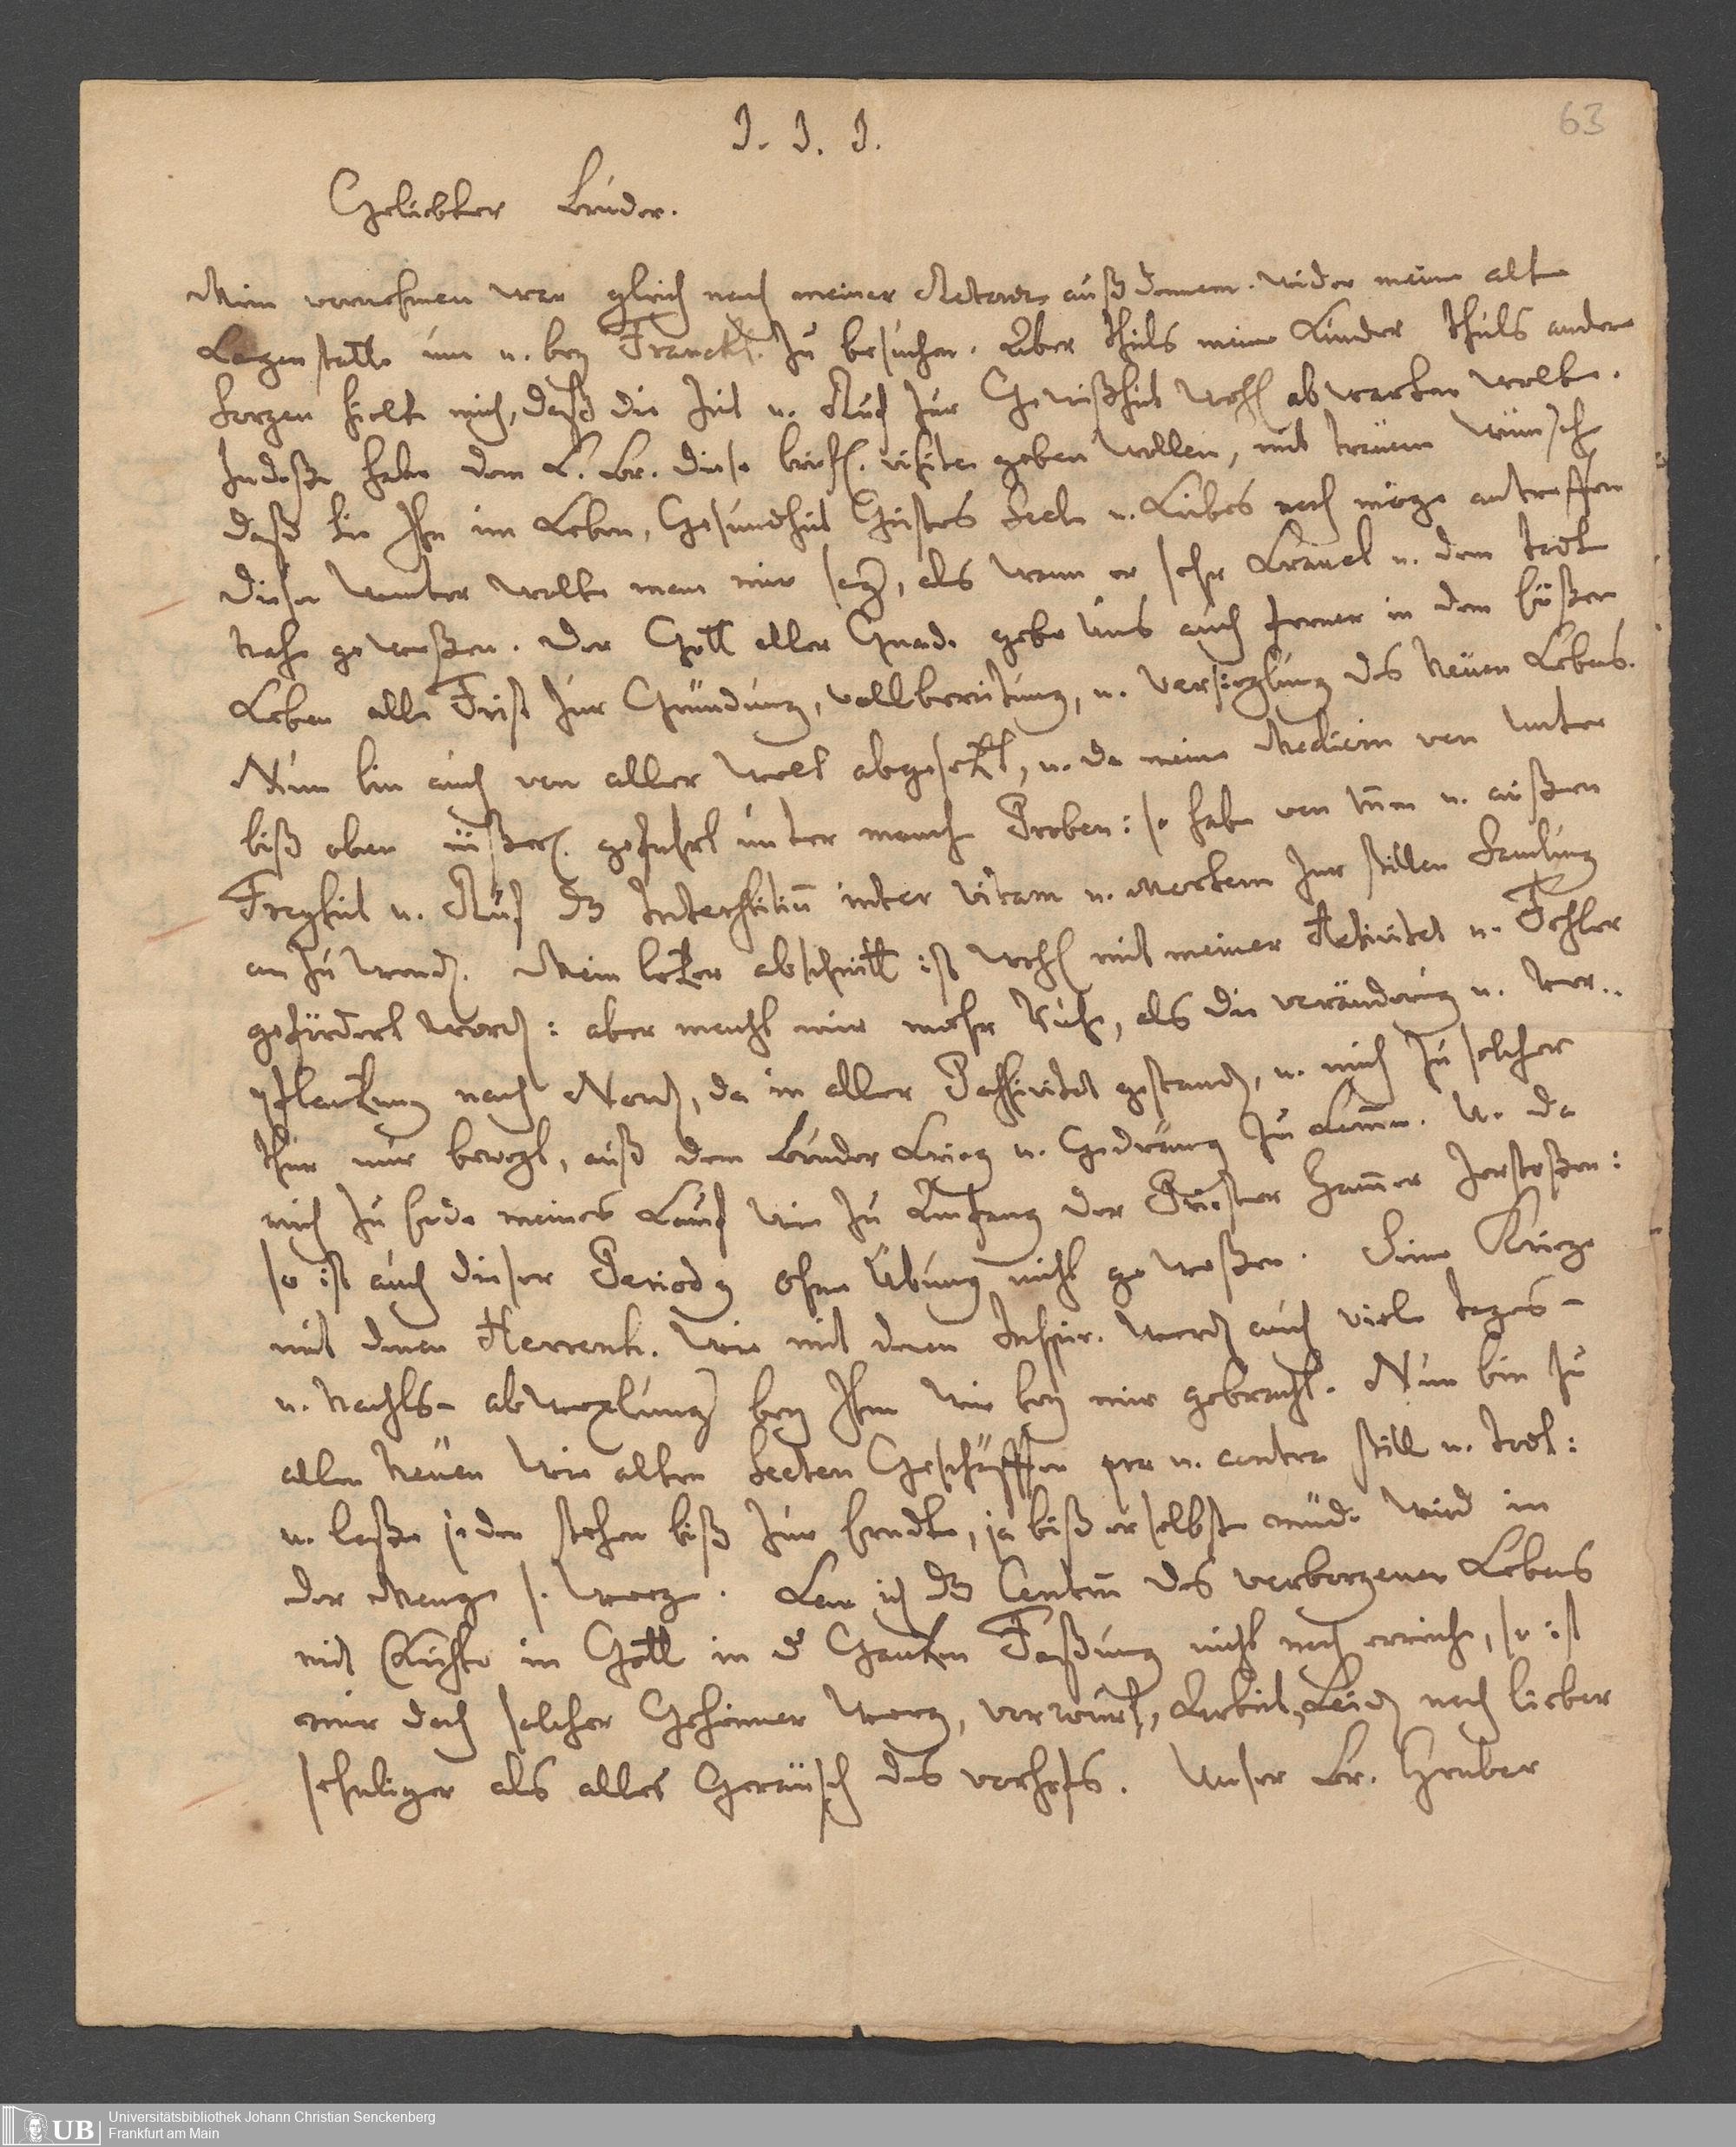 63
J. J. J.
Geliebter Bruder.
Mein vornehmen war gleich nach meiner Retour auß Dennem. wider meine alte
Lagerstatt um u. bey Franckf. zu besuchen. Aber theils meine Kinder theils andere
Sorgen hielte mich, daß die Zeit u. Ruf zur Gewißheit wohl abwarten wolte.
Indeße habe dem L. Br. diese briefl. visite geben wollen, mit treuem wunsche
daß sie Ihn im Leben, Gesundheit Geistes Seele u. Leibes noch möge antreffen
Diesen Winter wolte man mir sagen, als wann er sehr Kranck u. dem todt
nahe geweßen. Der Gott aller Gnade gebe uns auch ferner in dem büßen
Leben alle Frist zur Gründung, vollbereitung, u. versieglung des Neuen Lebens.
Nun bin auch von aller welt abgesetzt, u. da meine Medicin von unten
biß oben äußerl. geführt unter manche Proben: so habe von innen u. außen
Freyheit u. Ruf dz Interstitium inter vitam u. mortem zur stillen Samlung
anzuwenden. Mein letzter abschnitt ist wohl mit meiner Activitet u. Fehler
gefördert worden: aber macht mir mehr Ruhe, als die veränderung u. ver-
pflantzung nach Norden, da in aller Passivitet gestanden, u. mich zu solcher
thür nur bewegt, auß dem Bruder Krieg u. Gedräng zu kommen. u. da
mich zu Ende meines Lauf wie zu Anfang der Priester Hammer zerstoßen:
so ist auch dieser Periody ohne Übung nicht geweßen. Seine Kriege
mit denen Herrenh. wie mit denen Inspir. werden auch viele tages-
u. nachts- abwexlungen bey Ihm wie bey mir gebracht. Nun bin zu
allen Neuen wie alten Secten Geschäfften pro u. contra still u. todt:
u. laße jeden stehen biß zur Erndte, ja biß er selbst müde wird in
der Menge s. wege. Kan ich dz Centrum des verborgenen Lebens
mit Christo in Gott in d Gantzen Faßung nicht noch erreiche, so ist
mir doch solcher Geheimer weg, vorwurf, Arbeit, Leiden noch lieber
seheliger als alles Geräusch des vorhofs. Unser Br. Gruber
UB
Universitätsbibliothek Johann Christian Senckenberg
Frankfurt am Main